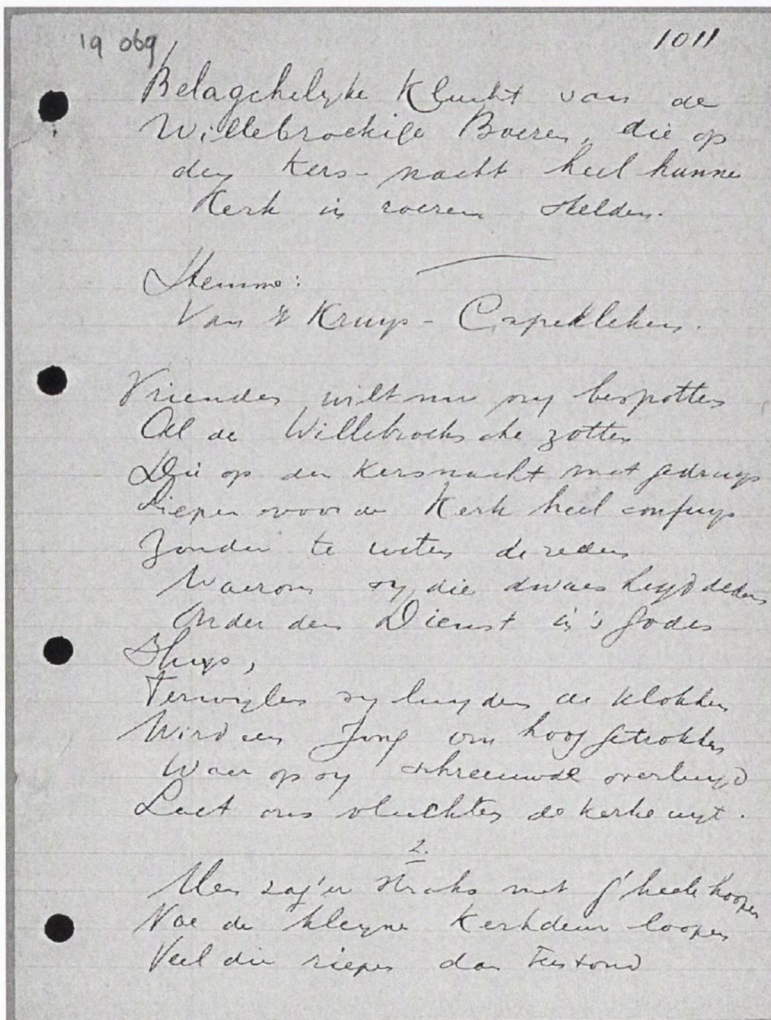 19 069
1011
Belagchelyke Klucht van de
Willebroekse Boeren, die op
den Kers-nacht heel hunne
Kerk in roeren stelden.
Stemme:
Van 't Kruys-Capelleken.
Vrienden wilt nu my bespotten
Al de Willebroeksche zotten
Die op den Kersnacht met gedruys
Liepen voor de Kerk heel confuys
Zonder te weten de reden
Waerom sy die dwaesheyd deden
Onder den Dienst in 's Godes
Huys,
Terwylen sy luyden de klokken
Wird een Jong om hoog getrokken
Waer op sy schreeuwde overluyd
Laet ons vluchten de kerke uyt.
2.
Men zag'er straks met g'heele hoopen
Nae de kleyne Kerkdeur loopen
Veel die riepen dan terstond